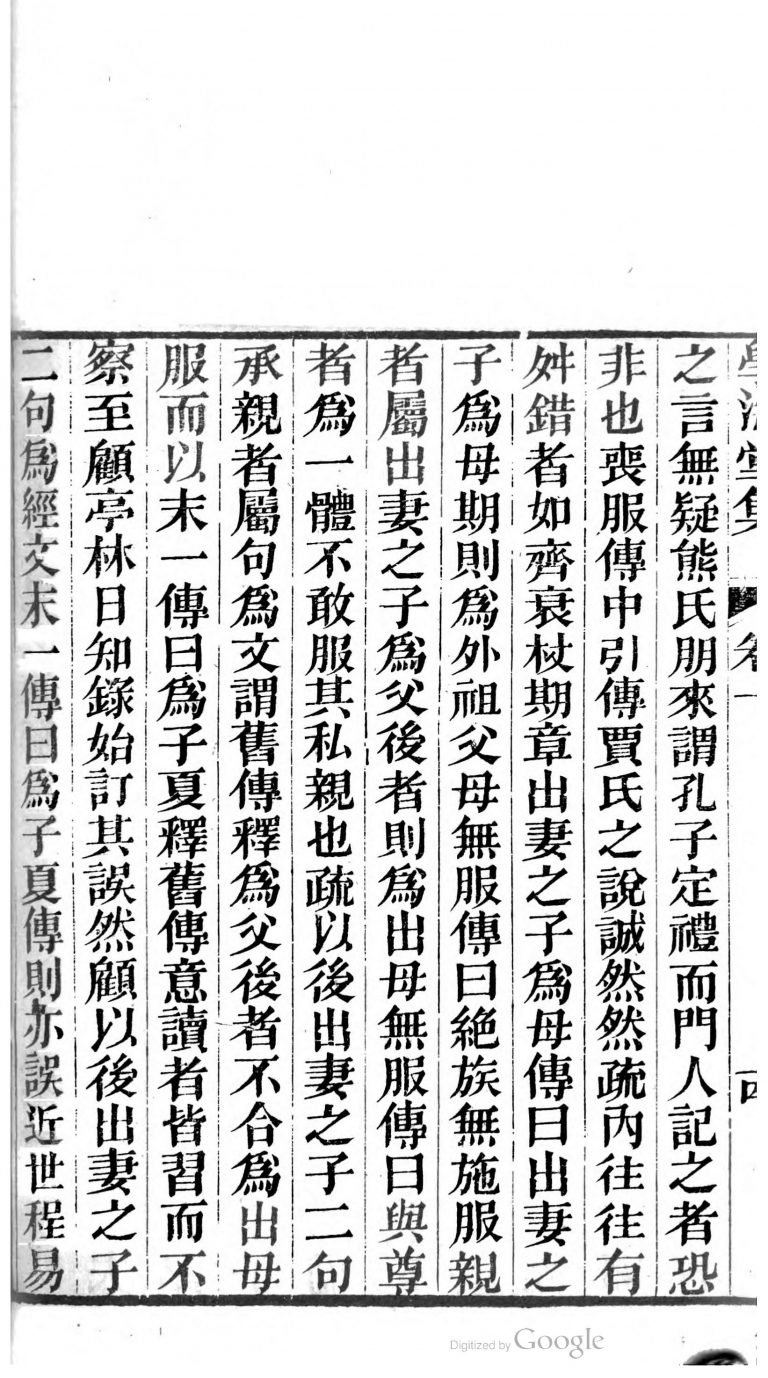 學海堂集 卷一
之言無疑熊氏朋來謂孔子定禮而門人記之者恐
非也喪服傳中引傳賈氏之說誠然然疏內往往有
舛錯者如齊衰杖期章出妻之子爲母傳曰出妻之
子爲母期則爲外祖父母無服傳曰絕族無施服親
者屬出妻之子爲父後者則爲出母無服傳曰與尊
者爲一體不敢服其私親也疏以後出妻之子二句
承親者屬句爲文謂舊傳釋爲父後者不合爲出母
服而以末一傳曰爲子夏釋舊傳意讀者皆習而不
察至顧亭林日知錄始訂其誤然顧以後出妻之子
二句爲經文末一傳曰爲子夏傳則亦誤近世程易
Digitized by Google